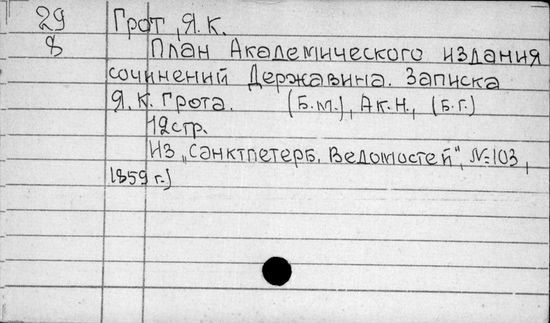 29 Грот, Я.К.
8 План Академического издания
сочинений Державина. Записка
Я.К. Грота. (Б.М.), Ак.Н., (Б.Г.)
12стр.
Из „Санктпетерб. Ведомостей", №103,
1859 г.)